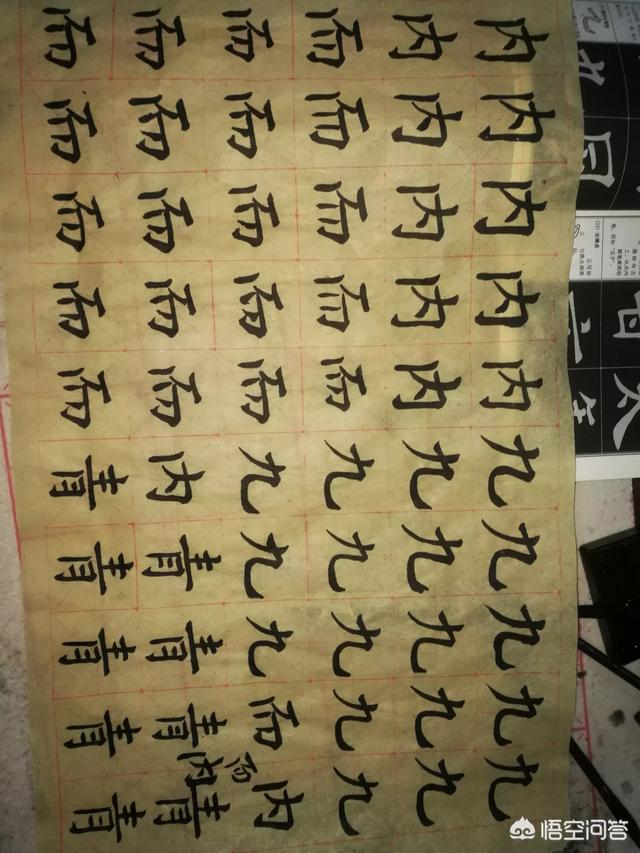 内内内内内九九九九九
内内内内内九九九九九
而而而而而九九九九九
而而而而而九九九而内
而
内
而而而而而内青青青青
而而而而而青青青青青
太
悟空问答